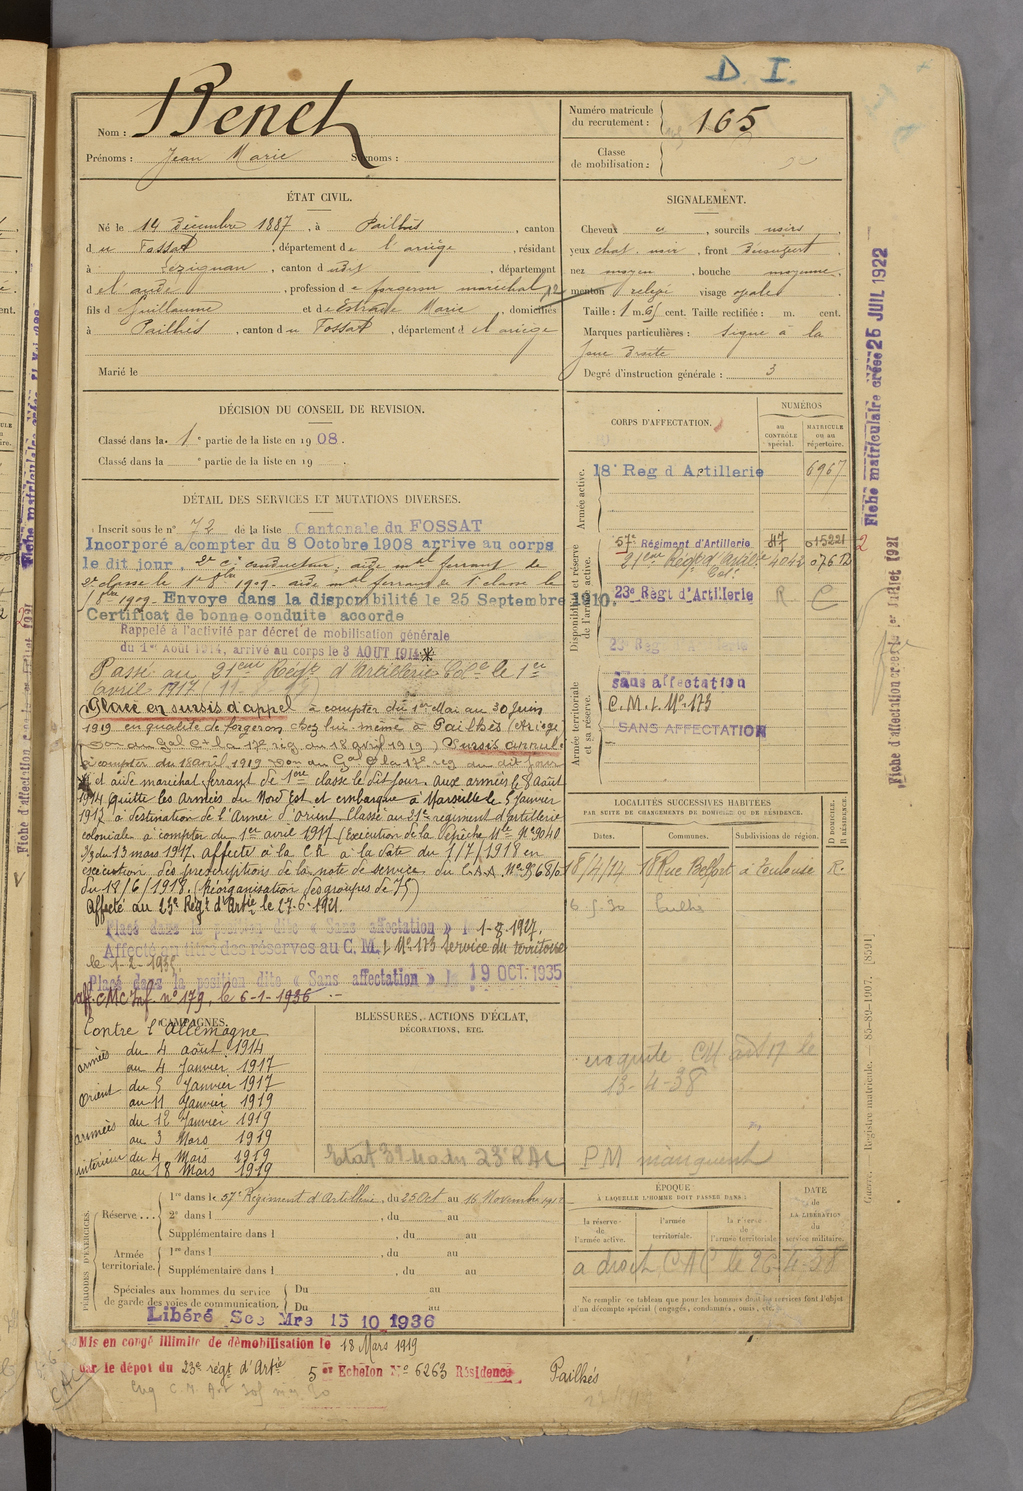 D. I.
Nom : Benet
Prénoms : Jean Marie Surnoms :
Numéro matricule du recrutement : 165
Classe de mobilisation :
ÉTAT CIVIL.
Né le 14 Décembre 1887, à Pailhès, canton
du Fossat, département de l'ariège, résidant
à Lezignan, canton dudit, département
de l'aude, profession de forgeron marechal
fils de Guillaume et de Estrade Marie, domiciliés
à Pailhès, canton du Fossat, département de l'ariège
Marié le
SIGNALEMENT.
Cheveux , sourcils noirs
yeux chat. noir, front Découvert
nez moyen, bouche moyenne
menton relevé visage ovale
Taille : 1 m. 61 cent. Taille rectifiée : m. cent.
Marques particulières : Signe à la
Joue Droite
Degré d'instruction générale : 3
DÉCISION DU CONSEIL DE REVISION.
Classé dans la 1e partie de la liste en 1908.
Classé dans la e partie de la liste en 19 .
DÉTAIL DES SERVICES ET MUTATIONS DIVERSES.
Inscrit sous le n° 72 de la liste Cantonale du FOSSAT
Incorporé a compter du 8 Octobre 1908 arrive au corps
le dit jour, 2e cr conducteur; aide mal ferrant de
2e classe le 1er 8bre 1909. aide mal ferrant de 1e classe le
8bre 1909. Envoye dans la disponibilité le 25 Septembre 1910.
Certificat de bonne conduite accorde
Rappelé à l'activité par décret de mobilisation générale
du 1er Août 1914, arrivé au corps le 3 AOUT 1914 *
Passé au 21eme Régt d'Artillerie Colle le 1er
avril 1917
Placé en sursis d'appel à compter du 1er Mai au 30 Juin
1919 en qualité de forgeron chez lui-même à Pailhès (Ariège)
Don du Gal Ct la 17e reg. du 18 avril 1919) Sursis annulé
à compter du 18 avril 1919 Don du Gal Ct la 17e reg du dit jour
* et aide maréchal ferrant de 1ere classe le dit jour. Aux armées le 8 Août
1914 Quitte les Armées du Nord Est et embarque à Marseille le 5 Janvier
1917 à destination de l'Armée d'Orient Classé au 21e regiment d'artillerie
coloniale à compter du 1er avril 1917 (Exécution de la dépêche Mle N° 9040
3/3 du 13 mars 1917. affecté à la C.R à la date du 1/7/1918 en
exécution des prescriptions de la note de service du C.A.A. No
du 18/6/1918. (Réorganisation des groupes de 75)
Affecté au 23e Régt d'Artie le 27.6.1921.
Placé dans la position dite « Sans affectation » le 1-8-1927.
Affecté au titre des réserves au C. M. I N° 173 Service du territoire
le 1-2-1935.
Placé dans la position dite « Sans affectation » le 19 OCT. 1935
aff. CMC Inf. n° 179, le 6-1-1936
CORPS D'AFFECTATION.
NUMÉROS
au CONTRÔLE spécial.
MATRICULE ou au répertoire.
Armée active.
18e Reg d Artillerie 6967
Disponibilité et réserve de l'armée active.
57e Régiment d'Artillerie 87 015221
21eme Régt d'Artillie Cole 4042 076
23e Régt d'Artillerie R C
23e Rég
Armée territoriale et sa réserve.
sans affectation
C.M.I. N° 173
SANS AFFECTATION
LOCALITÉS SUCCESSIVES HABITÉES
PAR SUITE DE CHANGEMENTS DE DOMICILE OU DE RÉSIDENCE.
Dates. Communes. Subdivisions de région. D DOMICILE. R RÉSIDENCE.
18/4/14 18 Rue Belfort à Toulouse R.
enquête CM
13-4-38
PM manquent
CAMPAGNES.
Contre l'Allemagne
armées du 4 août 1914
au 4 Janvier 1917
Orient du 5 Janvier 1917
au 11 Janvier 1919
armées du 12 Janvier 1919
au 3 Mars 1919
intérieur du 4 Mars 1919
au 18 Mars 1919
BLESSURES, ACTIONS D'ÉCLAT,
DÉCORATIONS, ETC.
23e RAC
PÉRIODES D'EXERCICES.
Réserve .... 1re dans le 57e Régiment d'Artillerie, du 25 Oct au 16 Novembre
2e dans l , du au
Supplémentaire dans l , du au
Armée territoriale. 1re dans l , du au
Supplémentaire dans l , du au
Spéciales aux hommes du service de garde des voies de communication. Du au
Du au
Libéré Sce Mre 15 10 1936
ÉPOQUE
À LAQUELLE L'HOMME DOIT PASSER DANS :
la réserve de l'armée active.
l'armée territoriale.
la réserve de l'armée territoriale
DATE de LA LIBÉRATION du service militaire.
a droit CAC le 26-4-38
Ne remplir ce tableau que pour les hommes dont les services font l'objet
d'un décompte spécial (engagés, condamnés, omis, etc.)
Mis en congé illimité de démobilisation le 18 Mars 1919
par le dépot du 23e régt d'Artie 5er Echelon No 6263 Résidence Pailhés
Fiche matriculaire créée 25 JUIL 1922
Fiche d'affectation créée le 1er Juillet 1921
Guerre. — Registre matricule. — 85-89-1907. [8591]